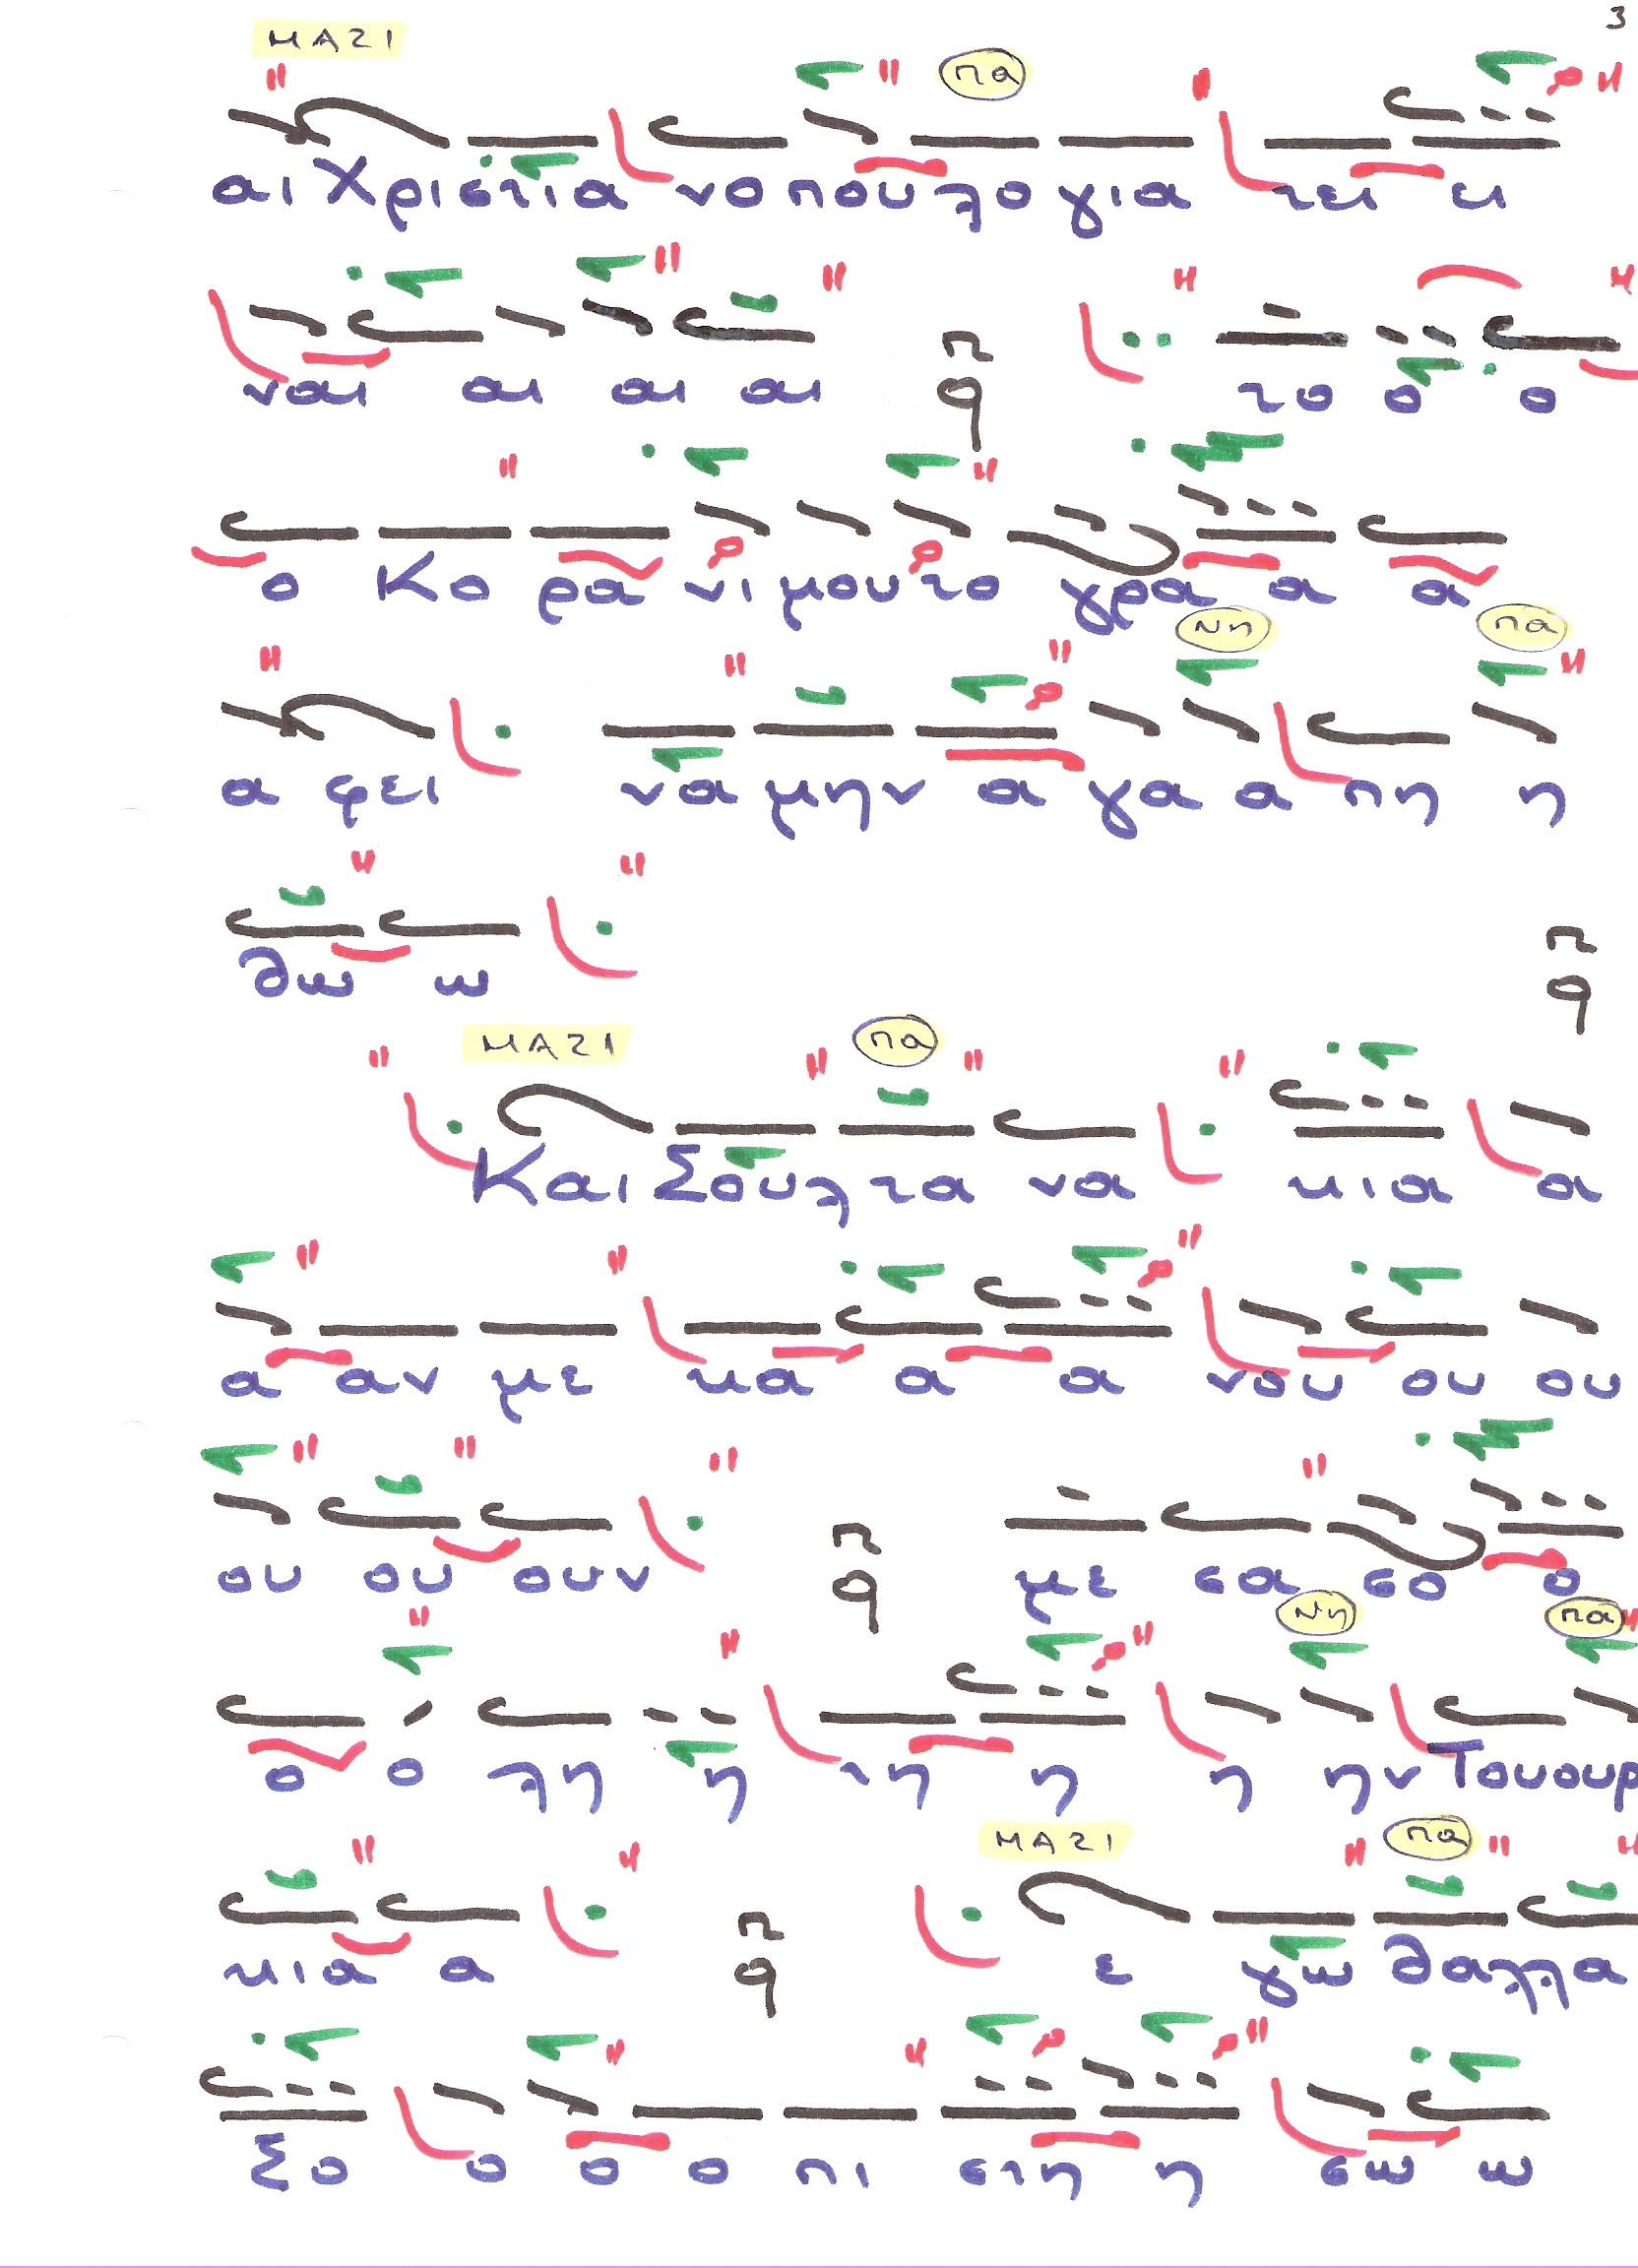 3
ΜΑΖΙ
πα
αι Χριστια νοπουλογια τει ει
ναι αι αι αι π q το ο ο
ο Κο ρα νι μου το γρα α α
Νη πα
α φει να μην α γα α πη η
θω ω π q
ΜΑΖΙ πα
Και Σουλτα να κια α
α αν με κα α α νου ου ου
ου ου ουν π q με σα σο ο
Νη πα
ο ο λη η τη η η ην Τουουρ
ΜΑΖΙ πα
κια α π q ε γω θαλλα
ξο ο ο ο πι στη η σω ω